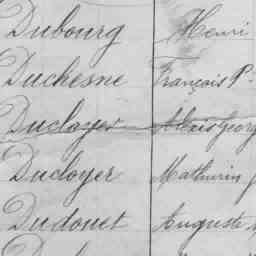 Dubourg Henri
Duchesne François P.
Ducloyer Alexis Georg
Ducloyer Mathurin J
Dudouet Auguste